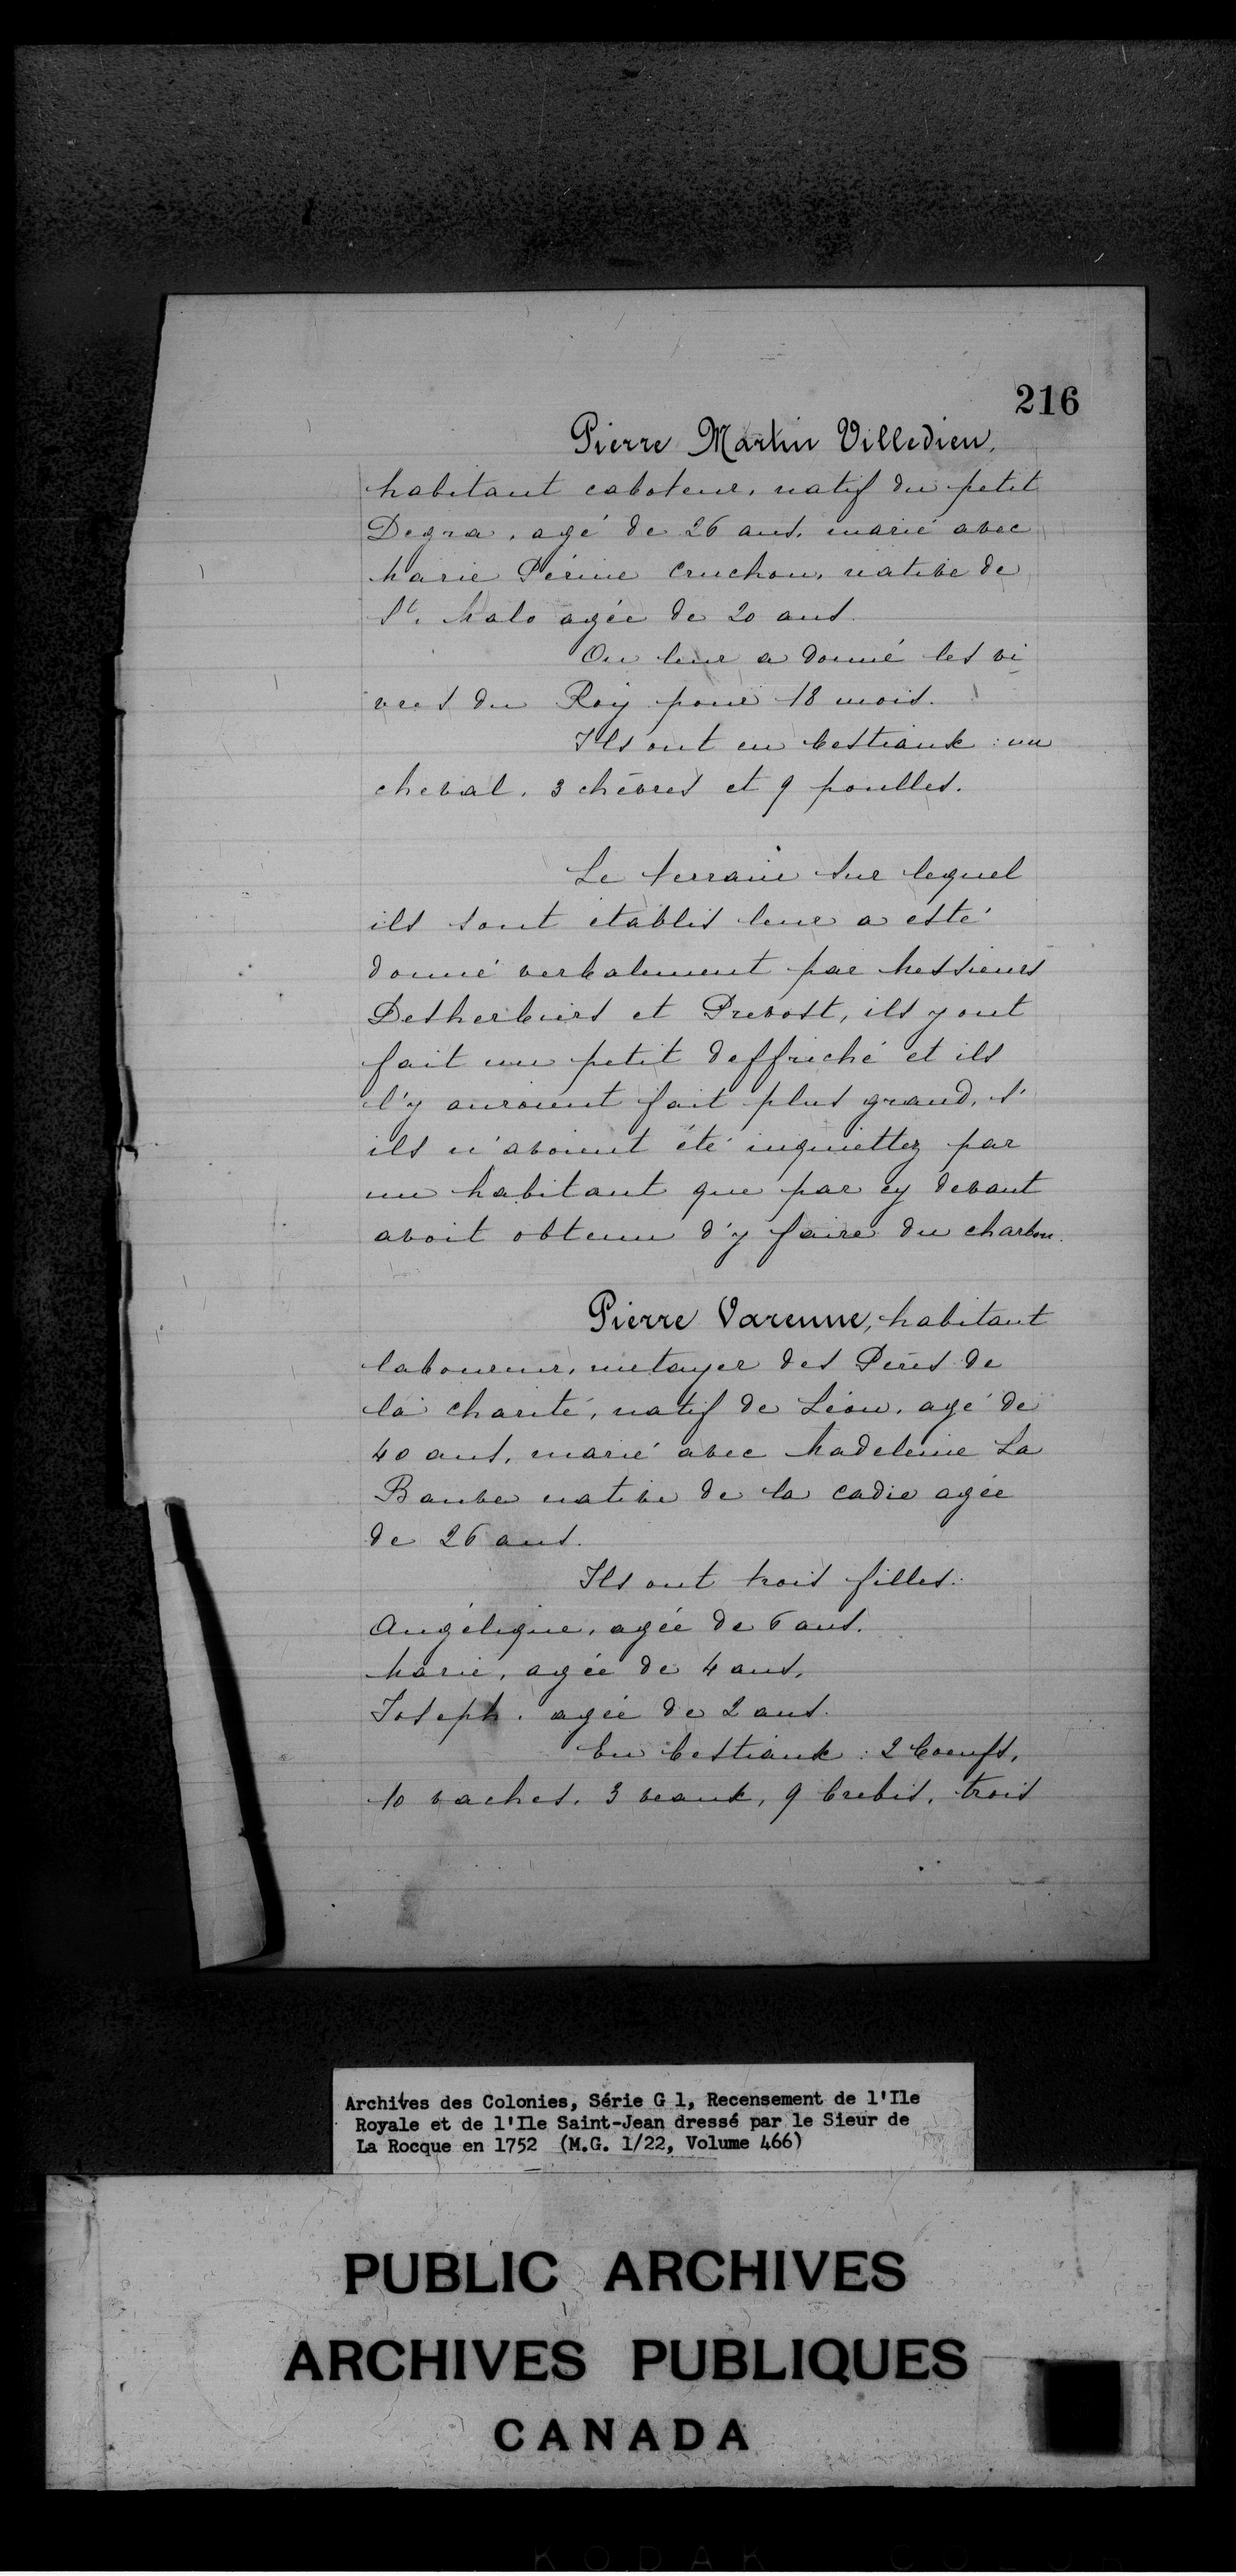 216
Pierre Martin Villedieu,
habitant caboteur, natif du petit
Degra, agé de 26 ans, marié avec
Marie Périne Cruchon, native de
St. Malo agée de 20 ans.
On leur a donné les vi
vres du Roy pour 18 mois.
Ils ont en bestiaux : un
cheval, 3 chèvres et 9 poulles.
Le terrain sur lequel
ils sont établis leur a esté
donné verbalement par Messieurs
Desherbiers et Prevost, ils y ont
fait un petit deffriché et ils
l'y auroient fait plus grand, s'
ils n'avoient été inquiettez par
un habitant que par cy devant
avoit obtenu d'y faire du charbon.
Pierre Varenne, habitant
laboureur, metayer des Pères de
la charité, natif de Léon, agé de
40 ans, marié avec Madeleine La
Bauve native de la cadie agée
de 26 ans.
Ils ont trois filles :
Angélique, agée de 6 ans.
Marie, agée de 4 ans,
Joseph, agée de 2 ans.
En bestiaux : 2 boeufs,
10 vaches, 3 veaux, 9 brebis, trois
Archives des Colonies, Série G 1, Recensement de l'Ile
Royale et de l'Ile Saint-Jean dressé par le Sieur de
La Rocque en 1752 (M.G. 1/22, Volume 466)
PUBLIC ARCHIVES
ARCHIVES PUBLIQUES
CANADA
KODAK